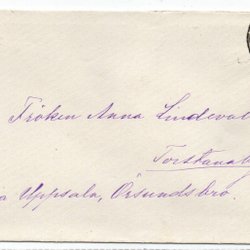 Fröken Anna Lindeval
Torstuna
a Uppsala, Örsundsbro.